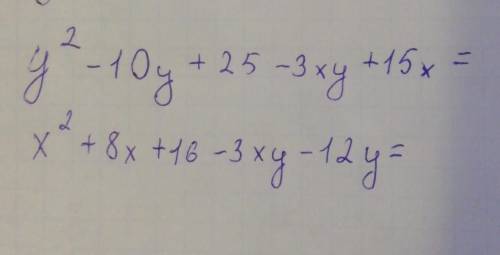 y² - 10y + 25 - 3xy + 15x =
x² + 8x + 16 - 3xy - 12y =